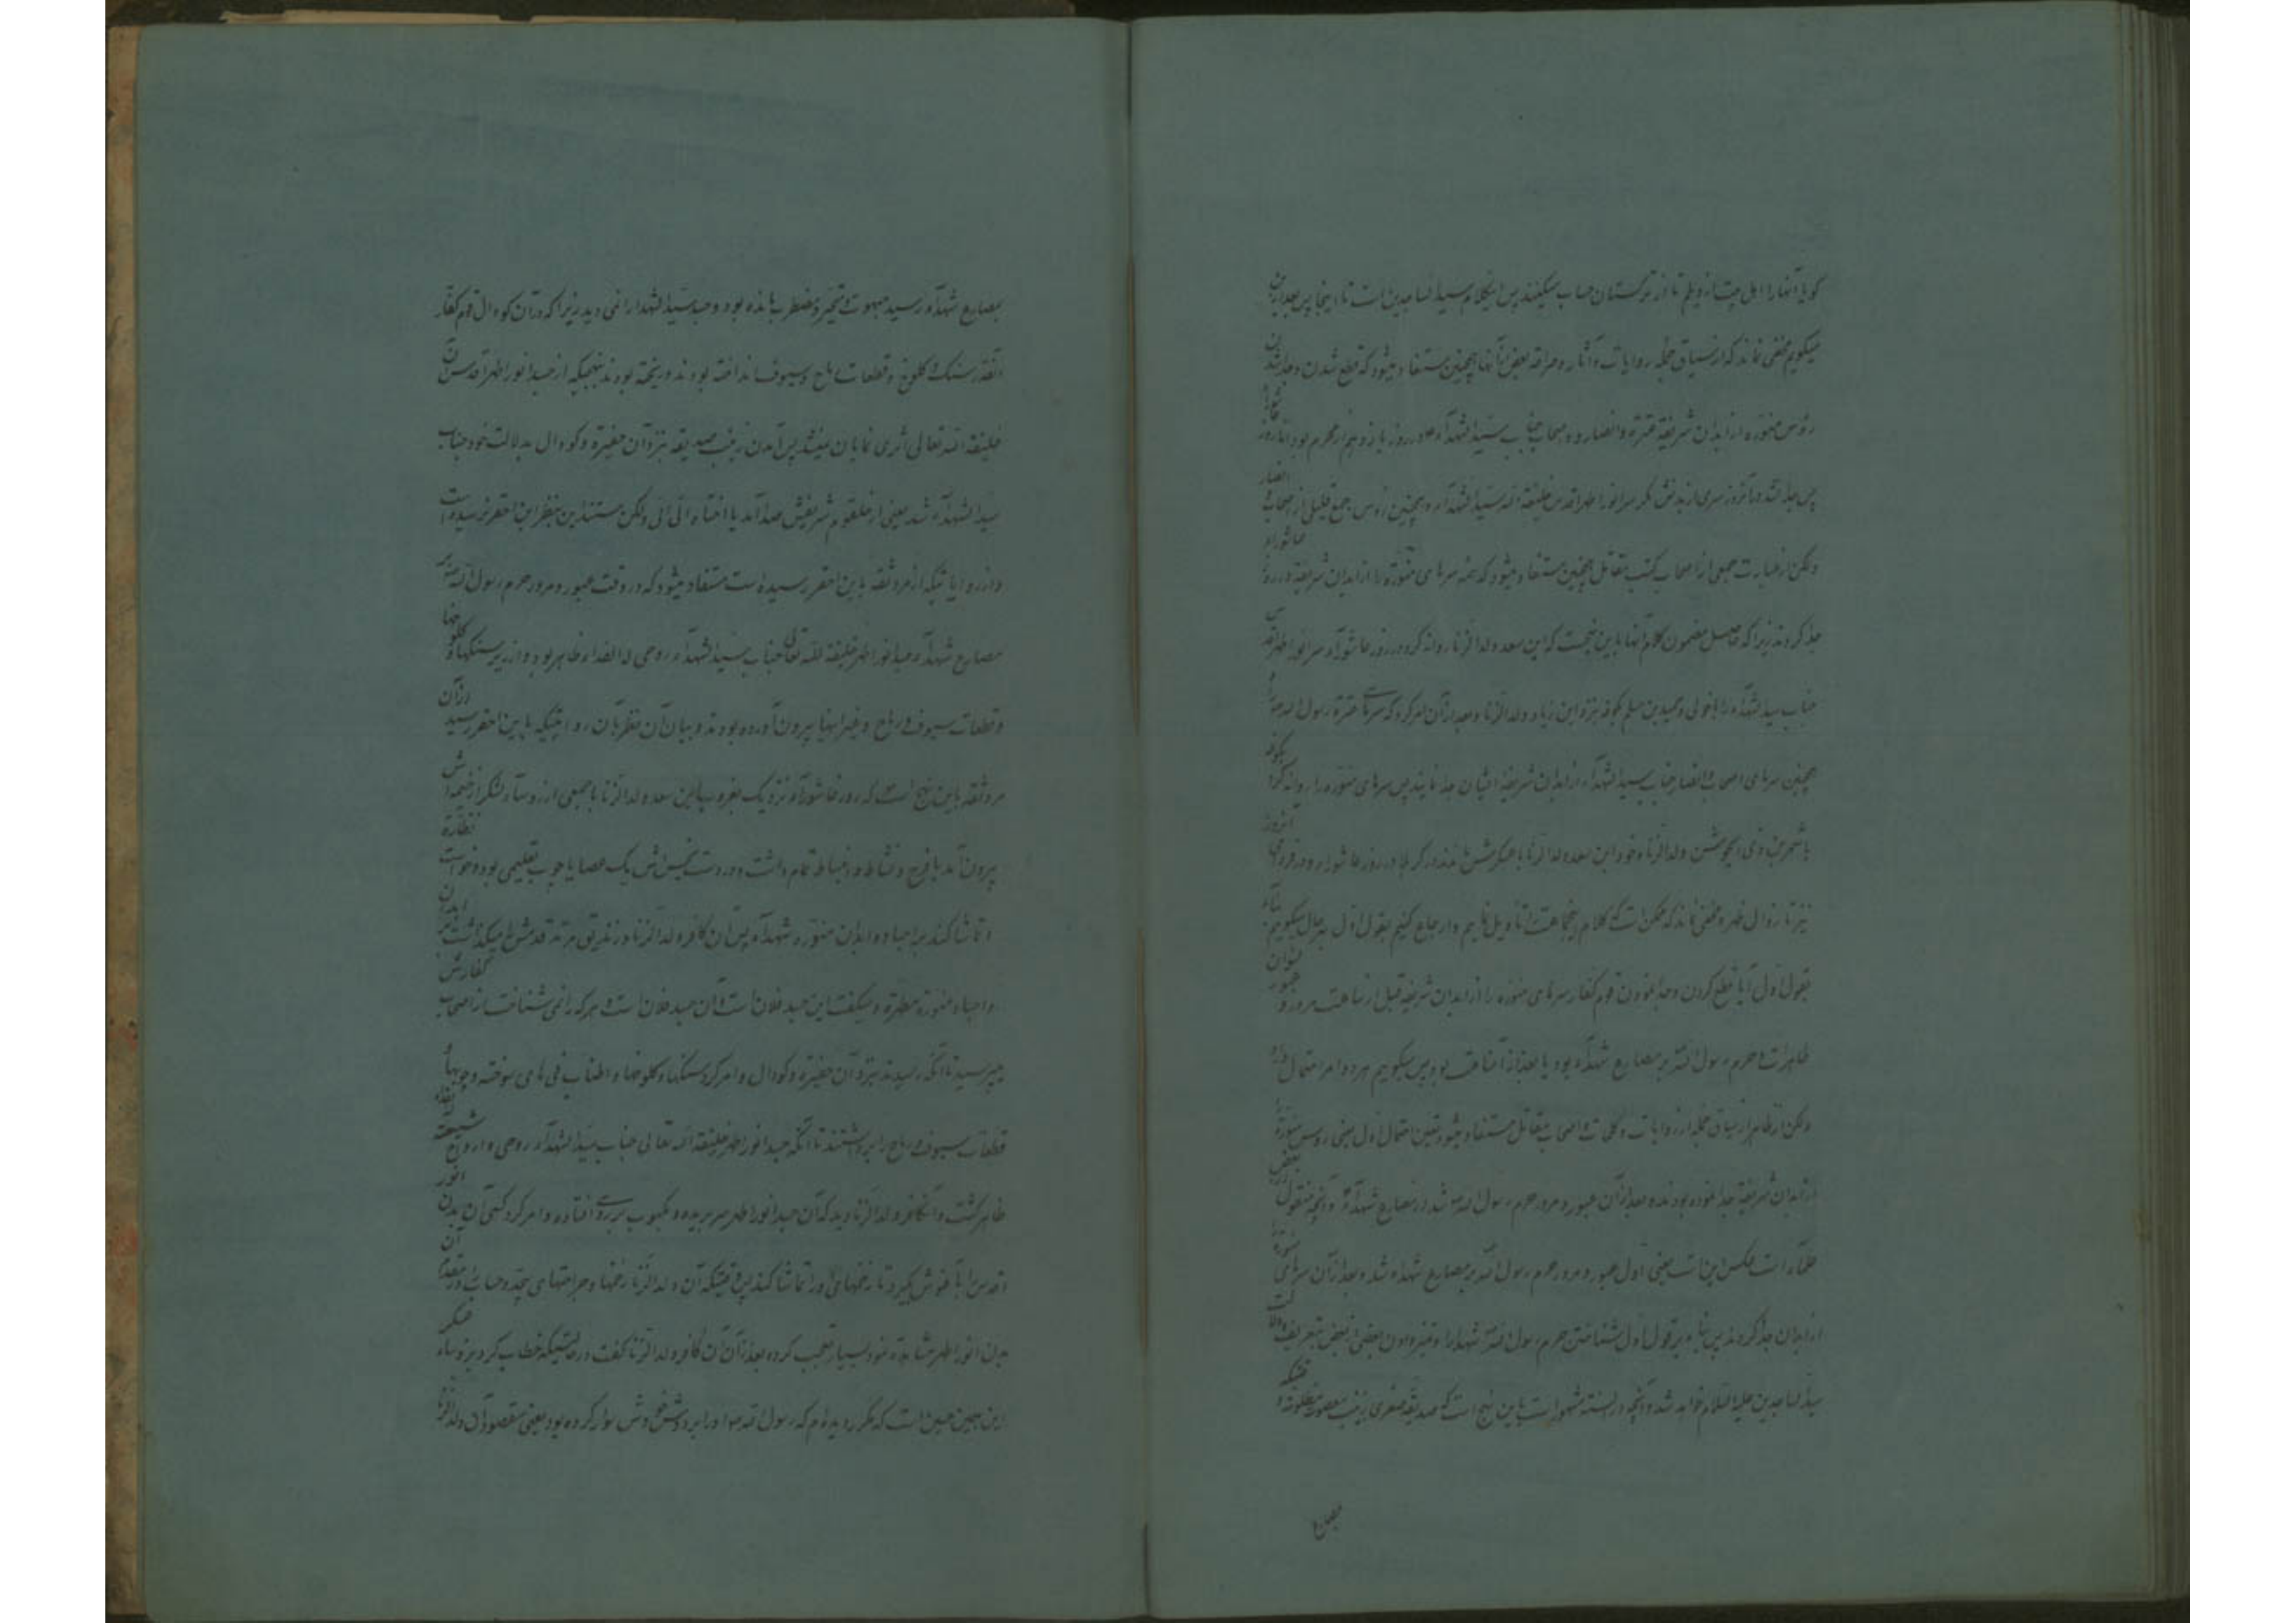 گویا آنها را اهل چین و دیلم تا از ترکستان حساب میکنند پس اینکلام سید الساجدین است تا اینجا پس بعد از این
میگویم مخفی نماند که از سیاق جمله روایات و آثار و صراحة بعض از آنها همچنین مستفاد میشود که قطع شدن و جدا شدن
رؤس منوره از ابدان شریفه عترة و انصار و اصحاب جناب سید الشهدآء در روز یازدهم از محرم بود اما روز عاشورا
پس جدا نشد در آنروز سری از بدنش مگر سر انور اطهر اقدس خلیفة الله سید الشهدآء و همچنین رؤس جمع قلیلی از اصحاب و انصار
ولکن از عبارت جمعی از اصحاب کتب مقاتل همچنین مستفاد میشود که همه سرهای منوره را از ابدان شریفه در روز عاشوراء
جدا کردند زیرا که حاصل مضمون کلام آنها باین نهج است که ابن سعد ولد الزنا روانه کرد در روز عاشورآء سر انور اطهر اقدس
جناب سید الشهدآء را با خولی و حمید بن مسلم بکوفه بنزد ابن زیاد ولد الزنا و بعد از آن امر کرد که سرهای عترة رسول الله ص و
همچنین سرهای اصحاب و انصار جناب سید الشهدآء از ابدان شریفه ایشان جدا نمایند پس سرهای منوره را روانه کرد بکوفه
با شمر بن ذی الجوشن ولد الزنا و خود ابن سعد ولد الزنا با عسکرش ماندند در کربلا در روز عاشورا و در فردای آنروز
نیز تا زوال ظهر و مخفی نماند که ممکن است که کلام اینجماعت را تأویل نماییم و ارجاع کنیم بقول اول بهر حال میگویم بناء
بقول اول آیا قطع کردن و جدا نمودن قوم کفار سرهای منوره را از ابدان شریفه قبل از ساعت مرور و عبور نسوان
طاهرات و حرم رسول الله بر مصارع شهدآء بود یا بعد از آنساعت بود پس میگویم هر دو امر احتمال دارد
ولکن از ظاهر سیاق جمله از روایات و کلمات اصحاب مقاتل مستفاد میشود تعین احتمال اول یعنی رؤس منوره را
از ابدان شریفه جدا نموده بودند و بعد از آن عبور و مرور حرم رسول الله ص شد در مصارع شهدآء و آنچه منقول از بعض
علماء است عکس این است یعنی اول عبور و مرور حرم رسول الله بر مصارع شهداء شد و بعد از آن سرهای منوره
از ابدان جدا کردند پس بناء بر قول اول شناختن حرم رسول الله شهدا را و تمیز دادن بعضی از بعض بتعریف و دلالت
سید الساجدین علیه السلام خواهد شد و آنچه در السنه مشهور است باین نهج است که صدیقه صغری زینب معصومه مظلومه وقتیکه
بمصارع
بمصارع شهدآء رسید مبهوت و متحیر و مضطر مانده بود و جسد سید الشهدا را نمی دید زیرا که در آن کودال قوم کفار
آنقدر سنگ و کلوخ و قطعات رماح و سیوف انداخته بودند و ریخته بودند بنهجیکه از جسد انور اطهر اقدس آن
خلیفة الله تعالی اثری نمایان نمیشد پس آمدن زینب صدیقه بنزد آن حفیره و کودال بدلالت خود جناب
سید الشهدآء شد یعنی از حلقوم شریفش صدا آمد یا اختاه الیّ الیّ ولکن مستند این بنظر این احقر نرسیده است
و از روایاتیکه از مرو ثقه باین احقر رسیده است مستفاد میشود که در وقت عبور و مرور حرم رسول الله ص بر
مصارع شهدآء جسد انور اطهر خلیفة الله تعالی جناب سید الشهدآء روحی له الفداء ظاهر بود و از زیر سنگها و کلوخها
و قطعات سیوف و رماح و غیر اینها بیرون آورده بودند و بیان آن بنظر بآن روایتیکه باین احقر رسید از آن
مرو ثقه باین نهج است که روز عاشورآء نزدیک بغروب ابن سعد ولد الزنا با جمعی از رؤسآء لشکر از خیمه اش
بیرون آمد با فرح و نشاط و انبساط تمام داشت و در دست نجس اش یک عصا یا چوب تعلیمی بود و خواست نظاره
و تماشا کند بر اجساد و ابدان منوره شهدآء پس آن کافر ولد الزنا و زندیق مرتد قدمش را میگذاشت بر ابدان
و اجساد منوره مطهره و میگفت این جسد فلان است و آن جسد فلان است و هر که را نمی شناخت از اصحاب کفارش
میپرسید تا آنکه رسیدند بنزد آن حفیره و کودال و امر کرد سنگها و کلوخها و اطناب و نی های سوخته و چوبها و
قطعات سیوف و رماح را برداشتند تا آنکه جسد انور اطهر خلیفة الله تعالی جناب سید الشهدآء روحی و ارواح شیعته
ظاهر گشت و آنکافر ولد الزنا دید که آن جسد انور اطهر سر بریده و مکبوب بر روی افتاده و امر کرد کسی آن بدن انور
اقدس را بآغوش گیرد تا زخمهای او را تماشا کند پس وقتیکه آن ولد الزنا زخمها و جراحتهای بیحد و حساب را در مقدم آن
بدن انور اطهر مشاهده نمود بسیار تعجب کرده بعد از آن آن کافر ولد الزنا گفت در حالتیکه خطاب کرد بر رؤساء عسکر
این همین حسین است که مکرر دیده ام که رسول الله ص او را بر دوش خودش سوار کرده بود یعنی مقصود آن ولد الزنا